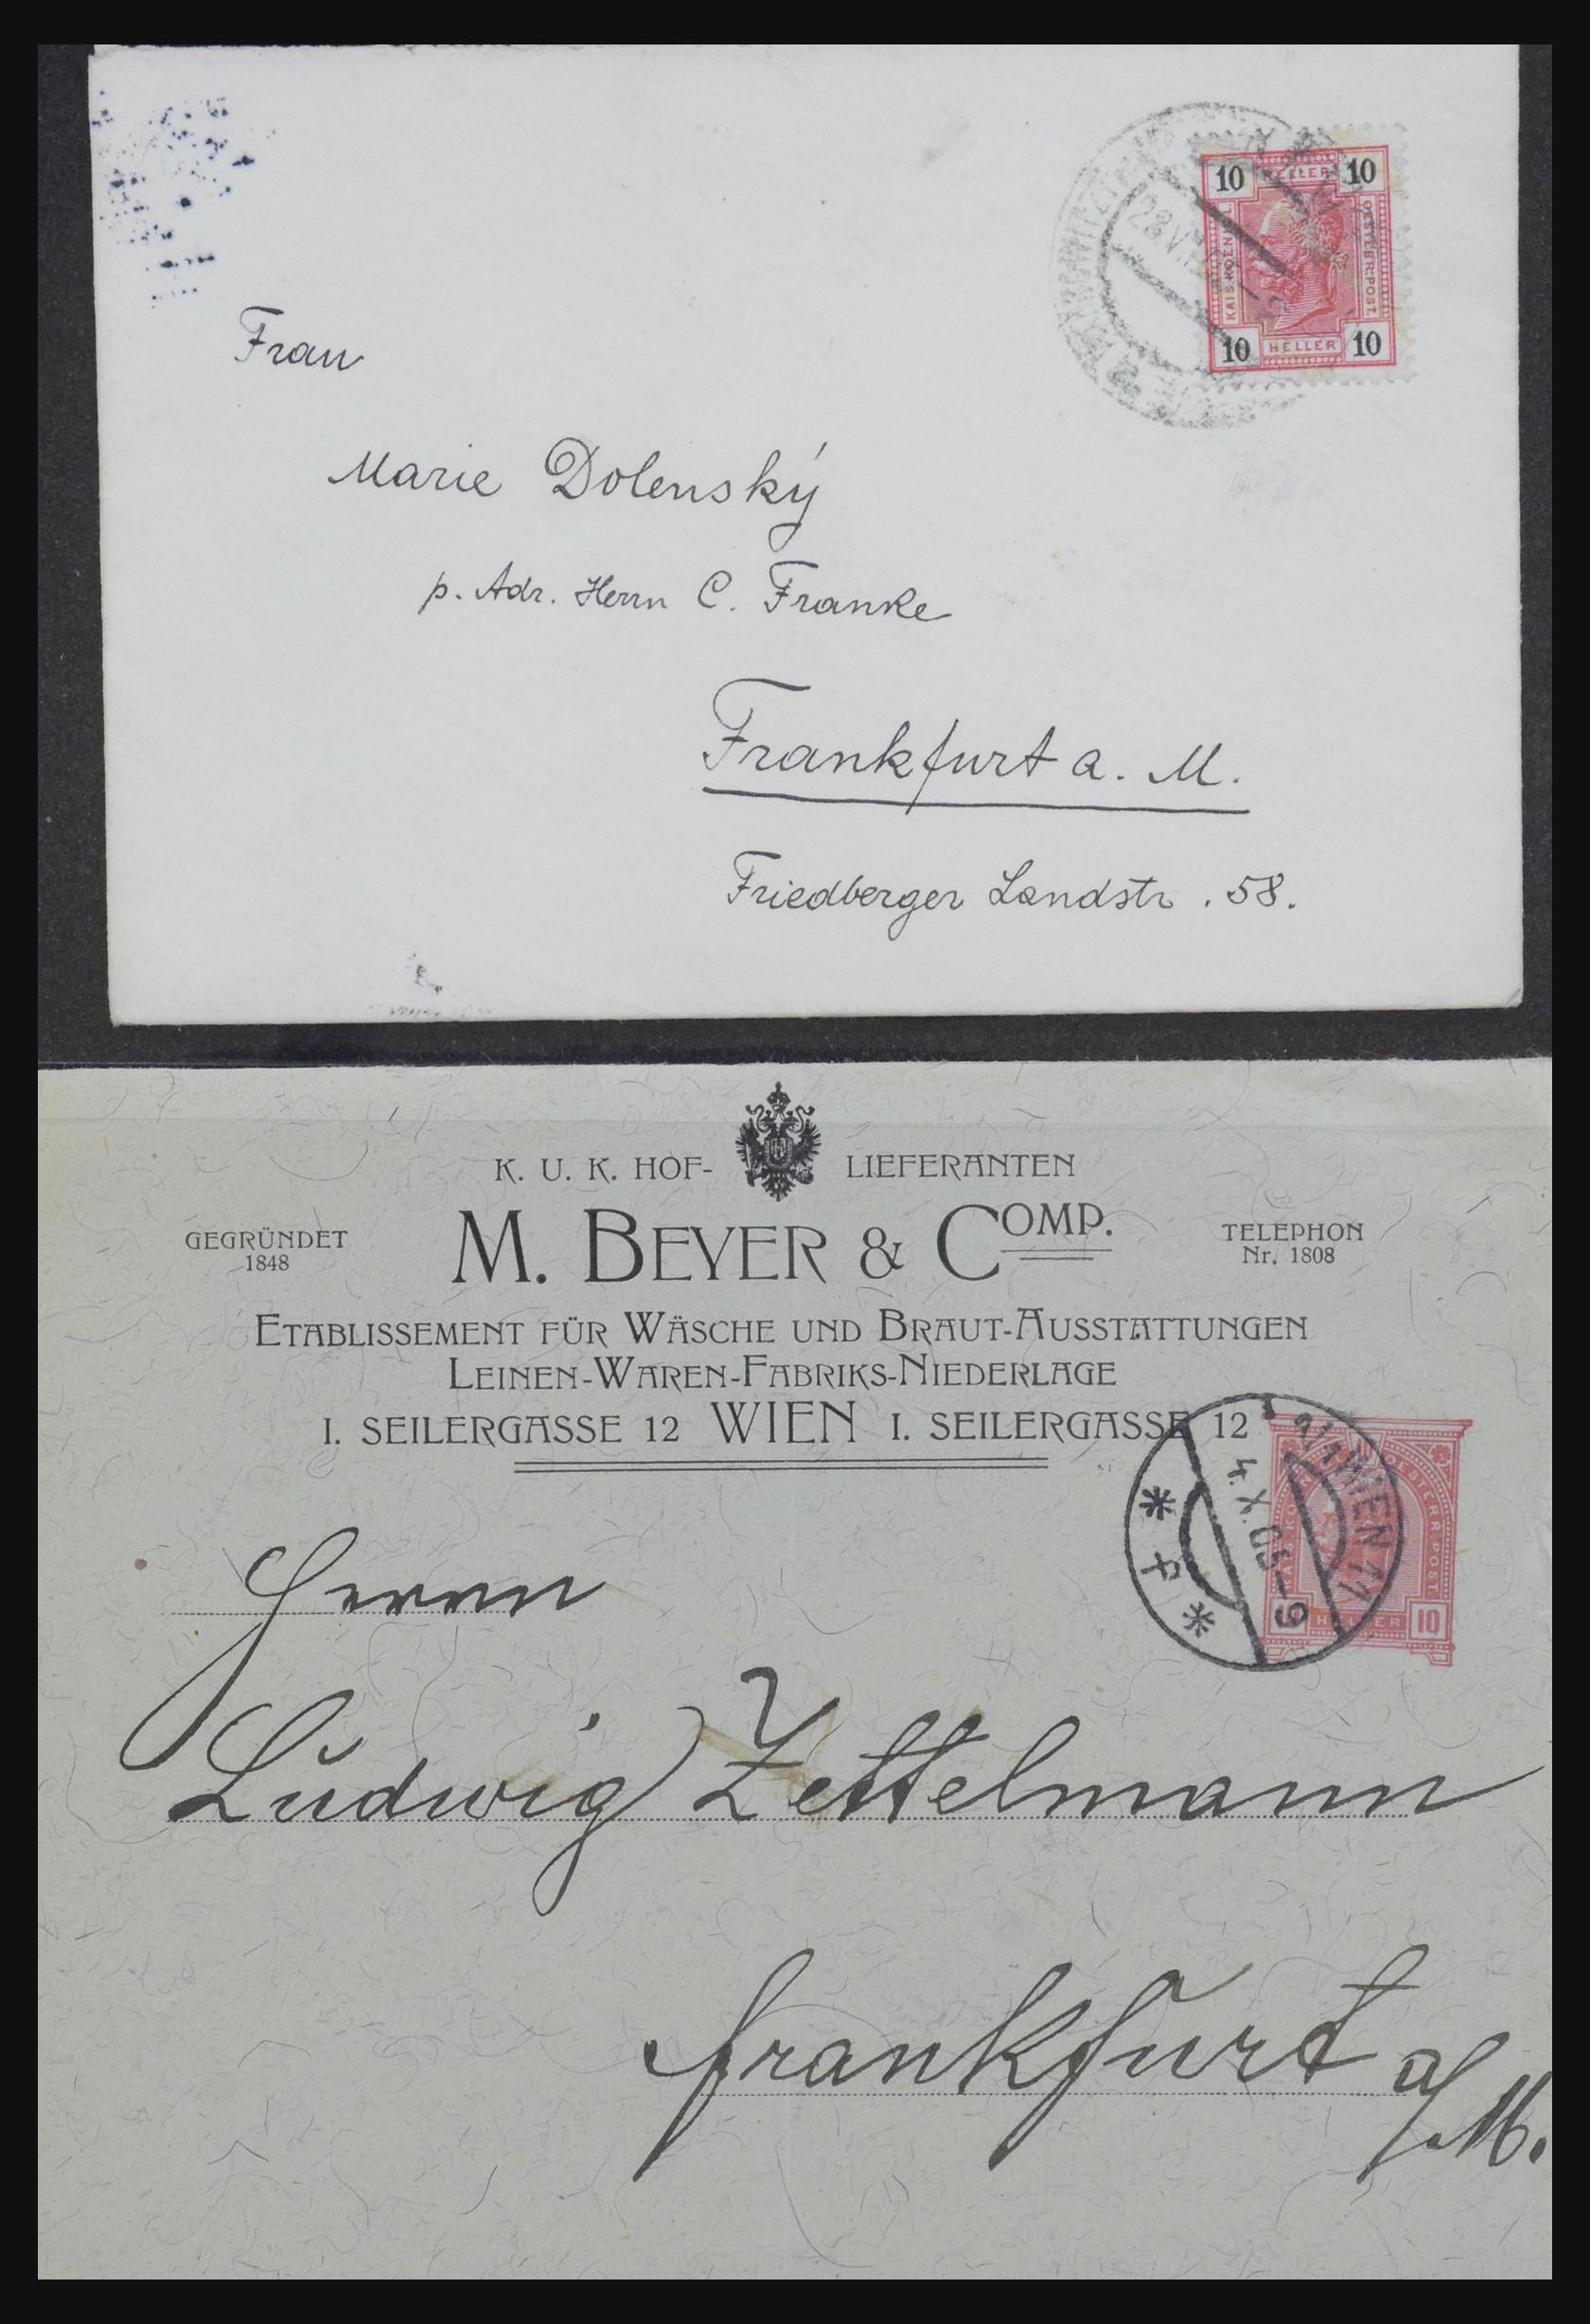 10 HELLER 10
KAIS. KOENIGL.
OESTERR. POST.
10 HELLER 10
28 VII
Frau
Marie Dolenský
p. Adr. Herrn C. Franke
Frankfurt a. M.
Friedberger Landstr. 58.
K. U. K. HOF- LIEFERANTEN
GEGRÜNDET
1848
M. BEYER & COMP.
TELEPHON
Nr. 1808
ETABLISSEMENT FÜR WÄSCHE UND BRAUT-AUSSTATTUNGEN
LEINEN-WAREN-FABRIKS-NIEDERLAGE
I. SEILERGASSE 12 WIEN I. SEILERGASSE 12
2/1 WIEN 11
4. X. 05 - 9
* f *
OESTERR. POST
HELLER 10
Herrn
Ludwig Zettelmann
Frankfurt a/M.